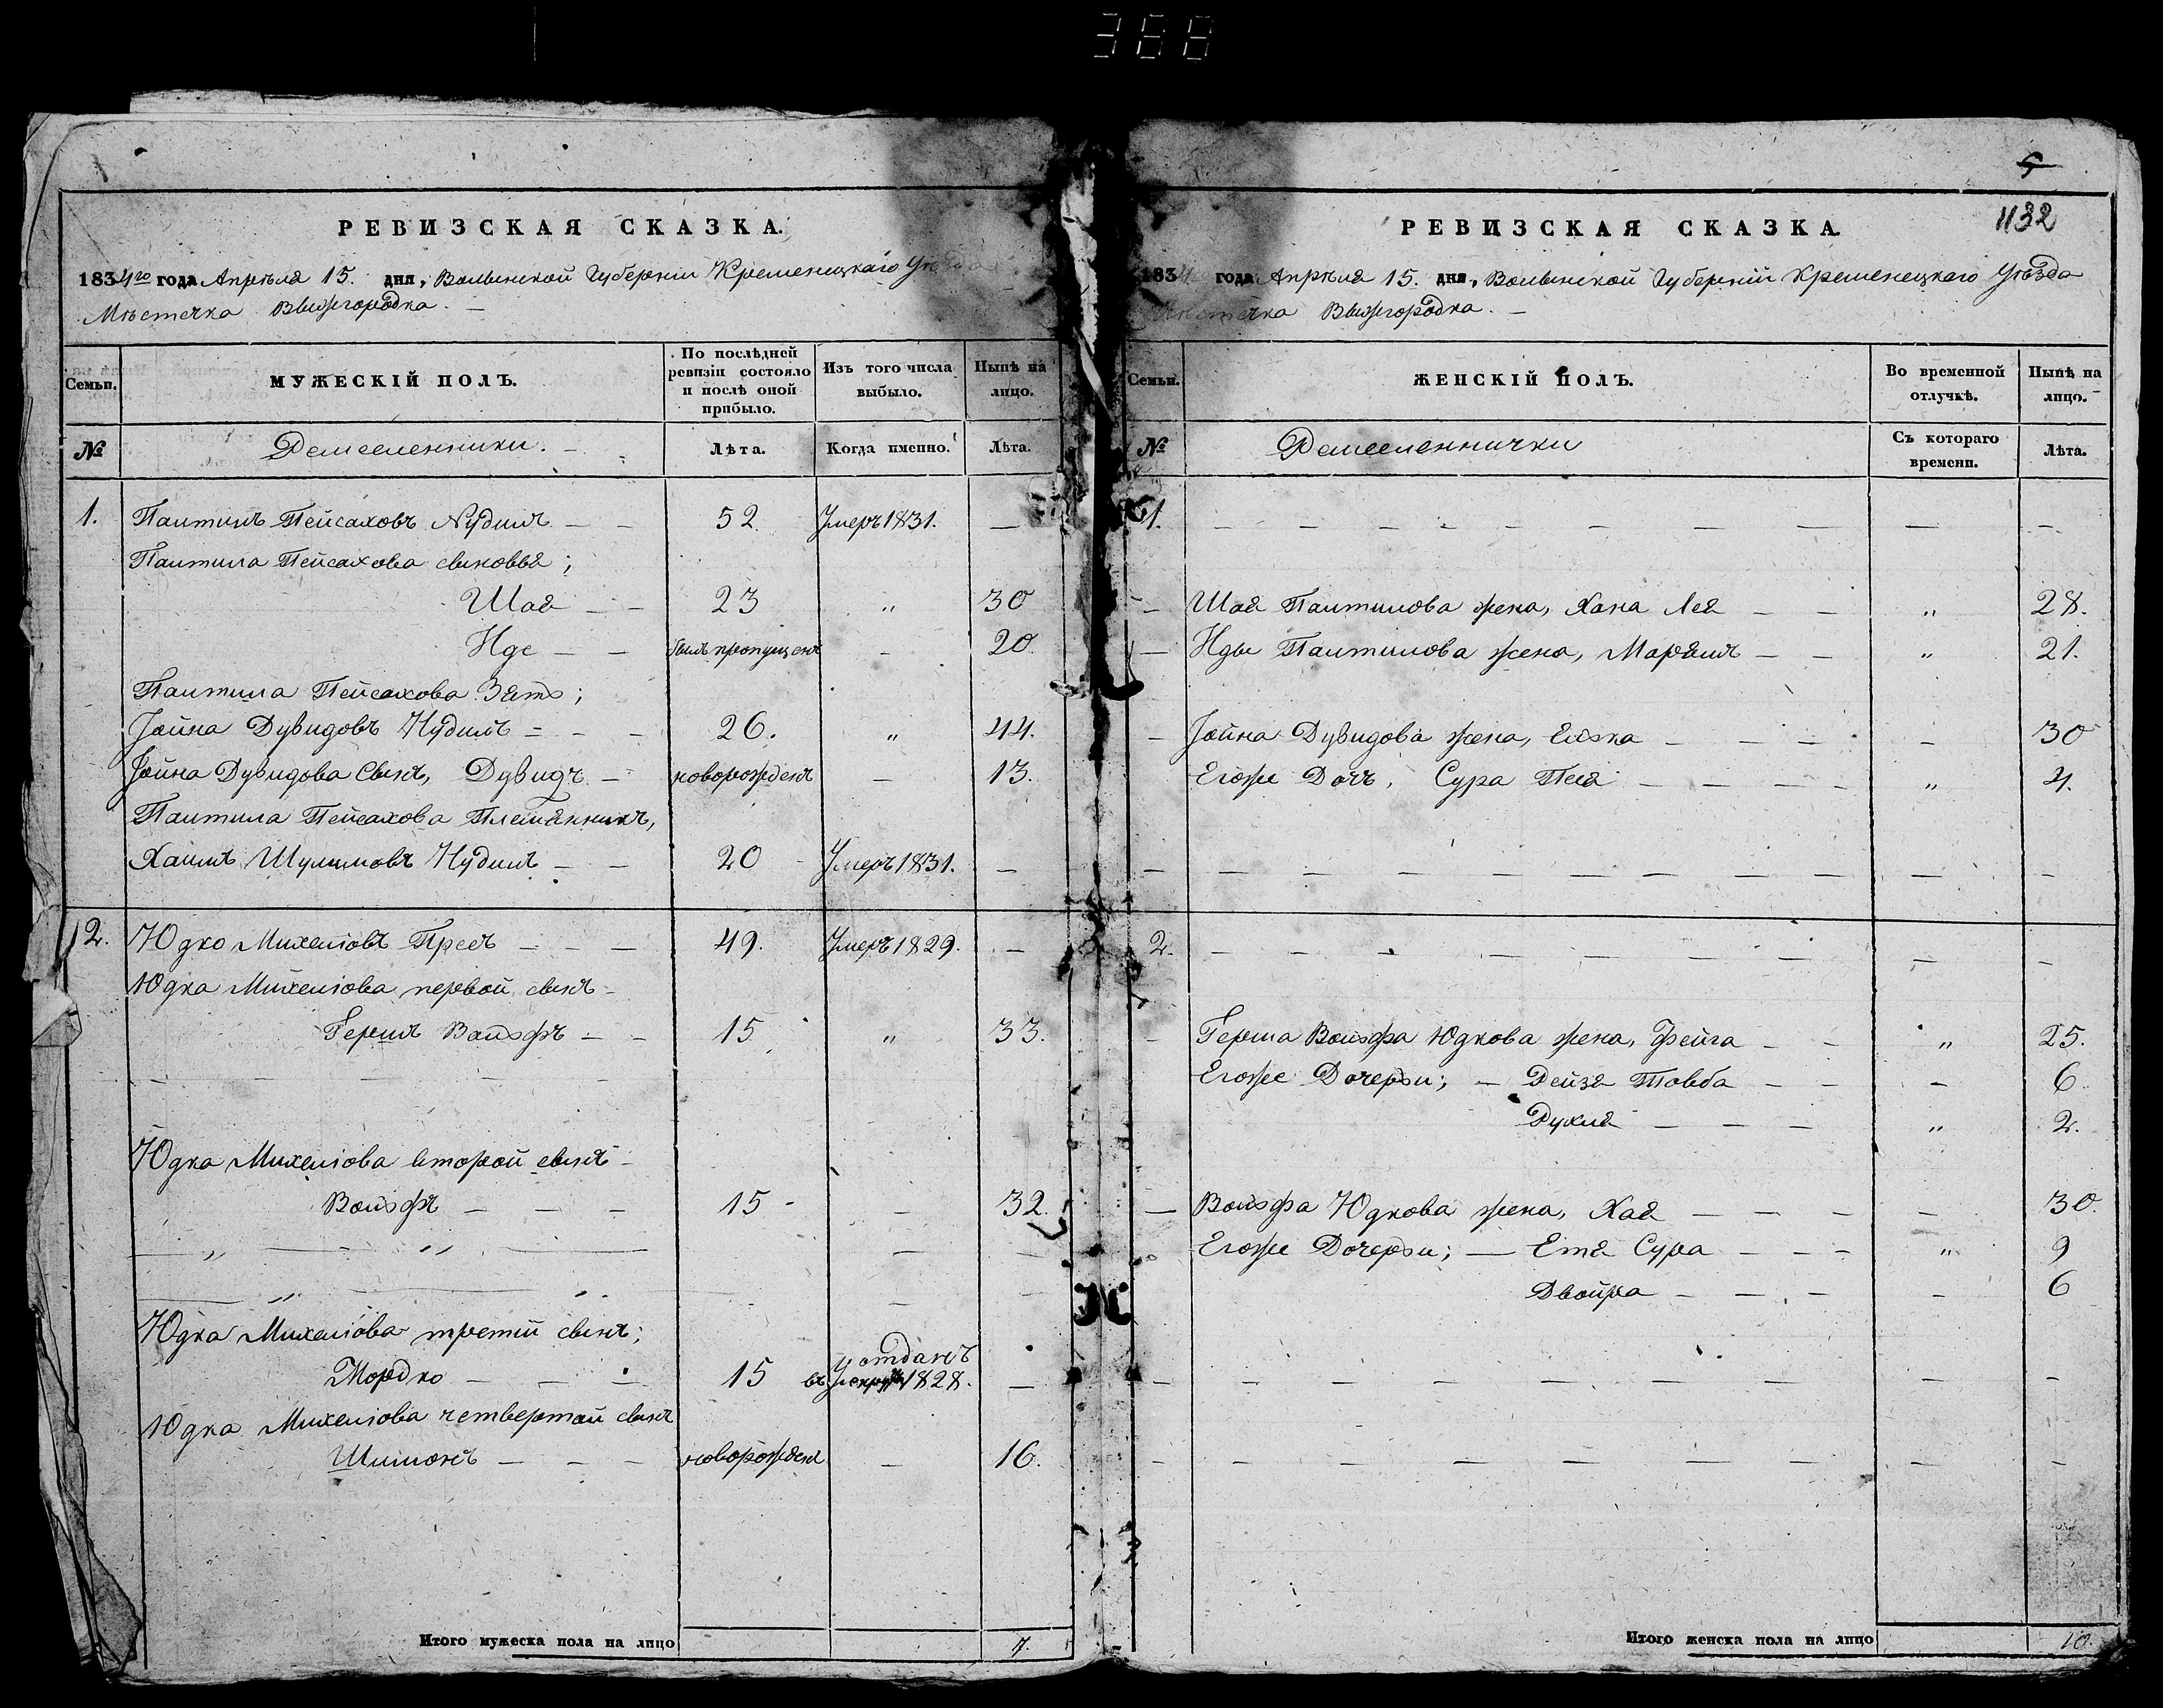 388
РЕВИЗСКАЯ СКАЗКА.
1834го года Апрѣля 15. дня, Волынской Губерніи Кременецкаго Уѣзда
Мѣстечка Вышгородка. —
Семьи.
МУЖЕСКІЙ ПОЛЪ.
По послѣдней ревизіи состояло и послѣ оной прибыло.
Изъ того числа выбыло.
Нынѣ на лицо.
№
Ремесленники. —
Лѣта.
Когда именно.
Лѣта.
1. Палтилъ Пейсаховъ Нудилъ — — 52. Умеръ 1831. —
Палтила Пейсахова сыновья;
Шая — — 23 „ 30
Иде — — былъ пропущенъ - 20.
Палтила Пейсахова Зять;
Іойна Дувидовъ Нудилъ — — — 26. „ 44.
Іойна Дувидова Сынъ, Дувидъ — новорожденъ — 13.
Палтила Пейсахова Племянникъ,
Хаимъ Шулимовъ Нудилъ — — 20 Умеръ 1831. —
2. Юдко Михелiовъ Пресъ — — — 49. Умеръ 1829. —
Юдка Михелiова первой сынъ —
Гершъ Вольфъ — — 15 „ 33.
Юдка Михелiова второй сынъ —
Вольфъ — — — 15 — — 32.
Юдка Михелiова третій сынъ;
Мордко — — — 15 отданъ
въ рекруты 1828. —
Юдка Михелiова четвертой сынъ
Шимонъ — — — новорожденъ — 16.
Итого мужеска пола на лицо 7.
5
1132
РЕВИЗСКАЯ СКАЗКА.
1834 года Апрѣля 15. дня, Волынской Губерніи Кременецкаго Уѣзда
Мѣстечка Вышгородка. —
Семьи.
ЖЕНСКІЙ ПОЛЪ.
Во временной отлучкѣ.
Нынѣ на лицо.
№
Ремесленнички
Съ котораго времени.
Лѣта.
1. — — — — — — — — — —
— Шая Палтилова жена, Хана Лея — — „ 28.
— Иды Палтилова жена, Марямъ — — „ 21.
— Іойна Дувидова жена, Елька — — — — — 30
Егоже Дочь, Сура Песя — — — — „ 4.
— — — — — — — — — — —
2. — — — — — — — — — —
— Герша Вольфа Юдкова жена, Фейга — — „ 25.
Егоже Дочери; — Рейзя Товба — — — 6.
Рухля — — — „ 2.
— Вольфа Юдкова жена, Хая — — — — 30.
Егоже Дочери; — Етя Сура — — — „ 9
Двойра — — — — 6
— — — — — — — — — —
— — — — — — — — — —
Итого женска пола на лицо 10.